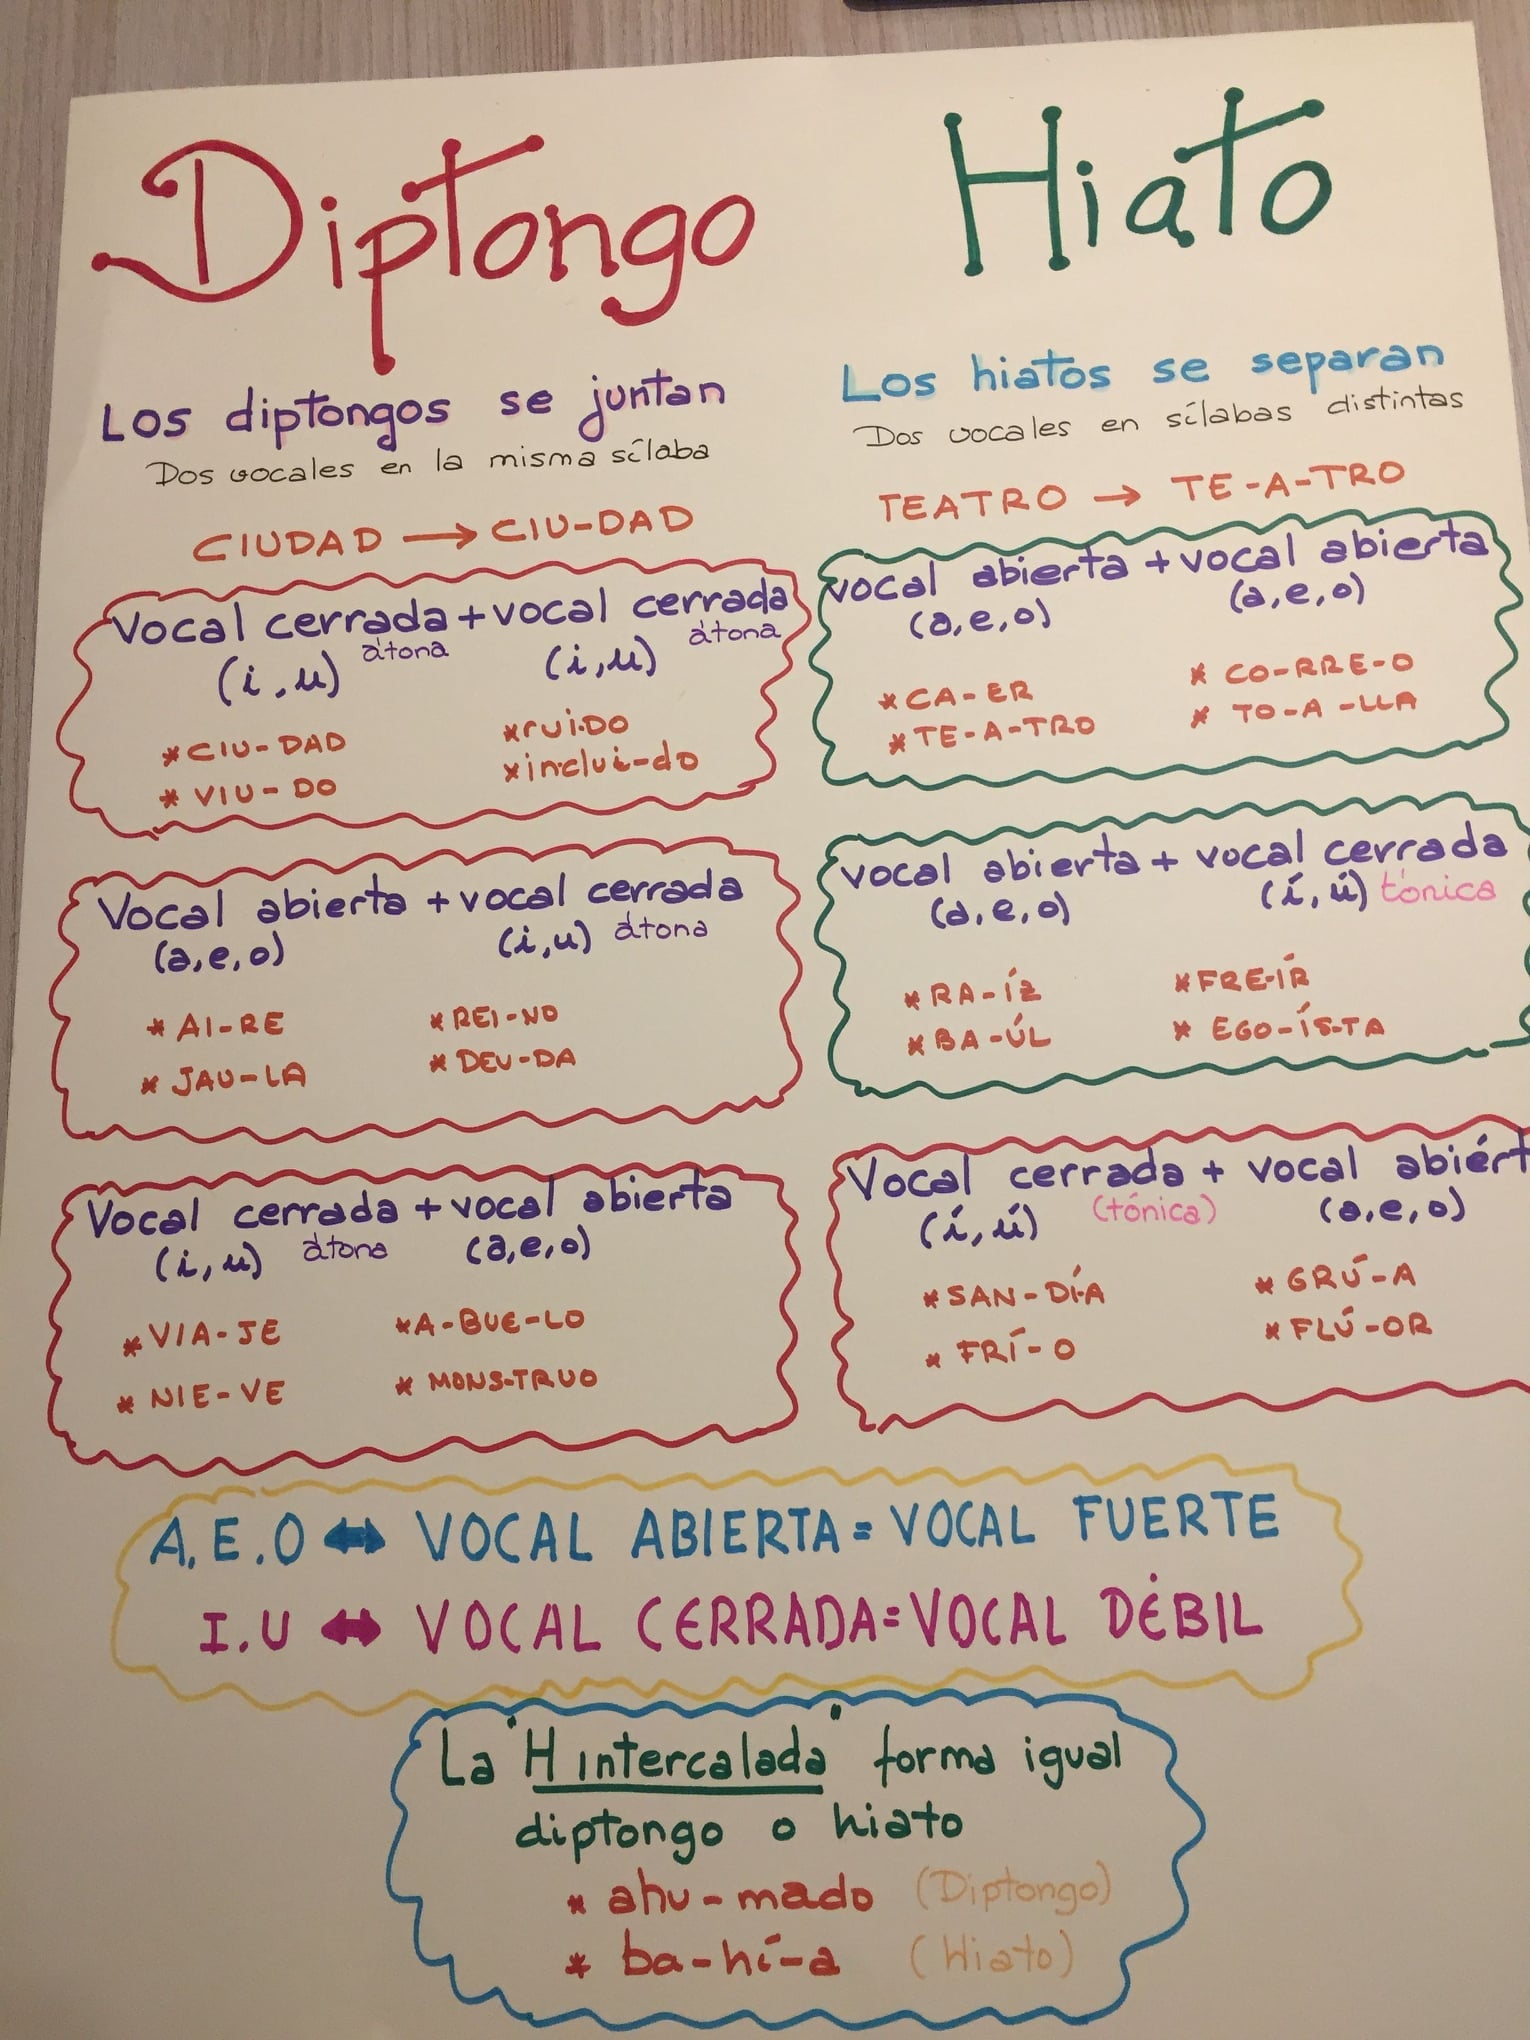 Diptongo
Los diptongos se juntan
Dos vocales en la misma sílaba
CIUDAD → CIU-DAD
Vocal cerrada + vocal cerrada
átona átona
(i, u) (i, u)
* CIU-DAD * rui-DO
* VIU-DO * inclui-do
Vocal abierta + vocal cerrada
(a, e, o) (i, u) átona
* AI-RE * REI-NO
* JAU-LA * DEU-DA
Vocal cerrada + vocal abierta
(i, u) átona (a, e, o)
* VIA-JE * A-BUE-LO
* NIE-VE * MONS-TRUO
Hiato
Los hiatos se separan
Dos vocales en sílabas distintas
TEATRO → TE-A-TRO
vocal abierta + vocal abierta
(a, e, o) (a, e, o)
* CA-ER * CO-RRE-O
* TE-A-TRO * TO-A-LLA
vocal abierta + vocal cerrada
(a, e, o) (í, ú) tónica
* RA-ÍZ * FRE-ÍR
* BA-ÚL * EGO-ÍS-TA
Vocal cerrada + vocal abiért
(í, ú) (tónica) (a, e, o)
* SAN-DÍ-A * GRÚ-A
* FRÍ-O * FLÚ-OR
A, E, O ⇔ VOCAL ABIERTA = VOCAL FUERTE
I, U ⇔ VOCAL CERRADA = VOCAL DÉBIL
La "H intercalada" forma igual
diptongo o hiato
* ahu-mado (Diptongo)
* ba-hí-a (Hiato)